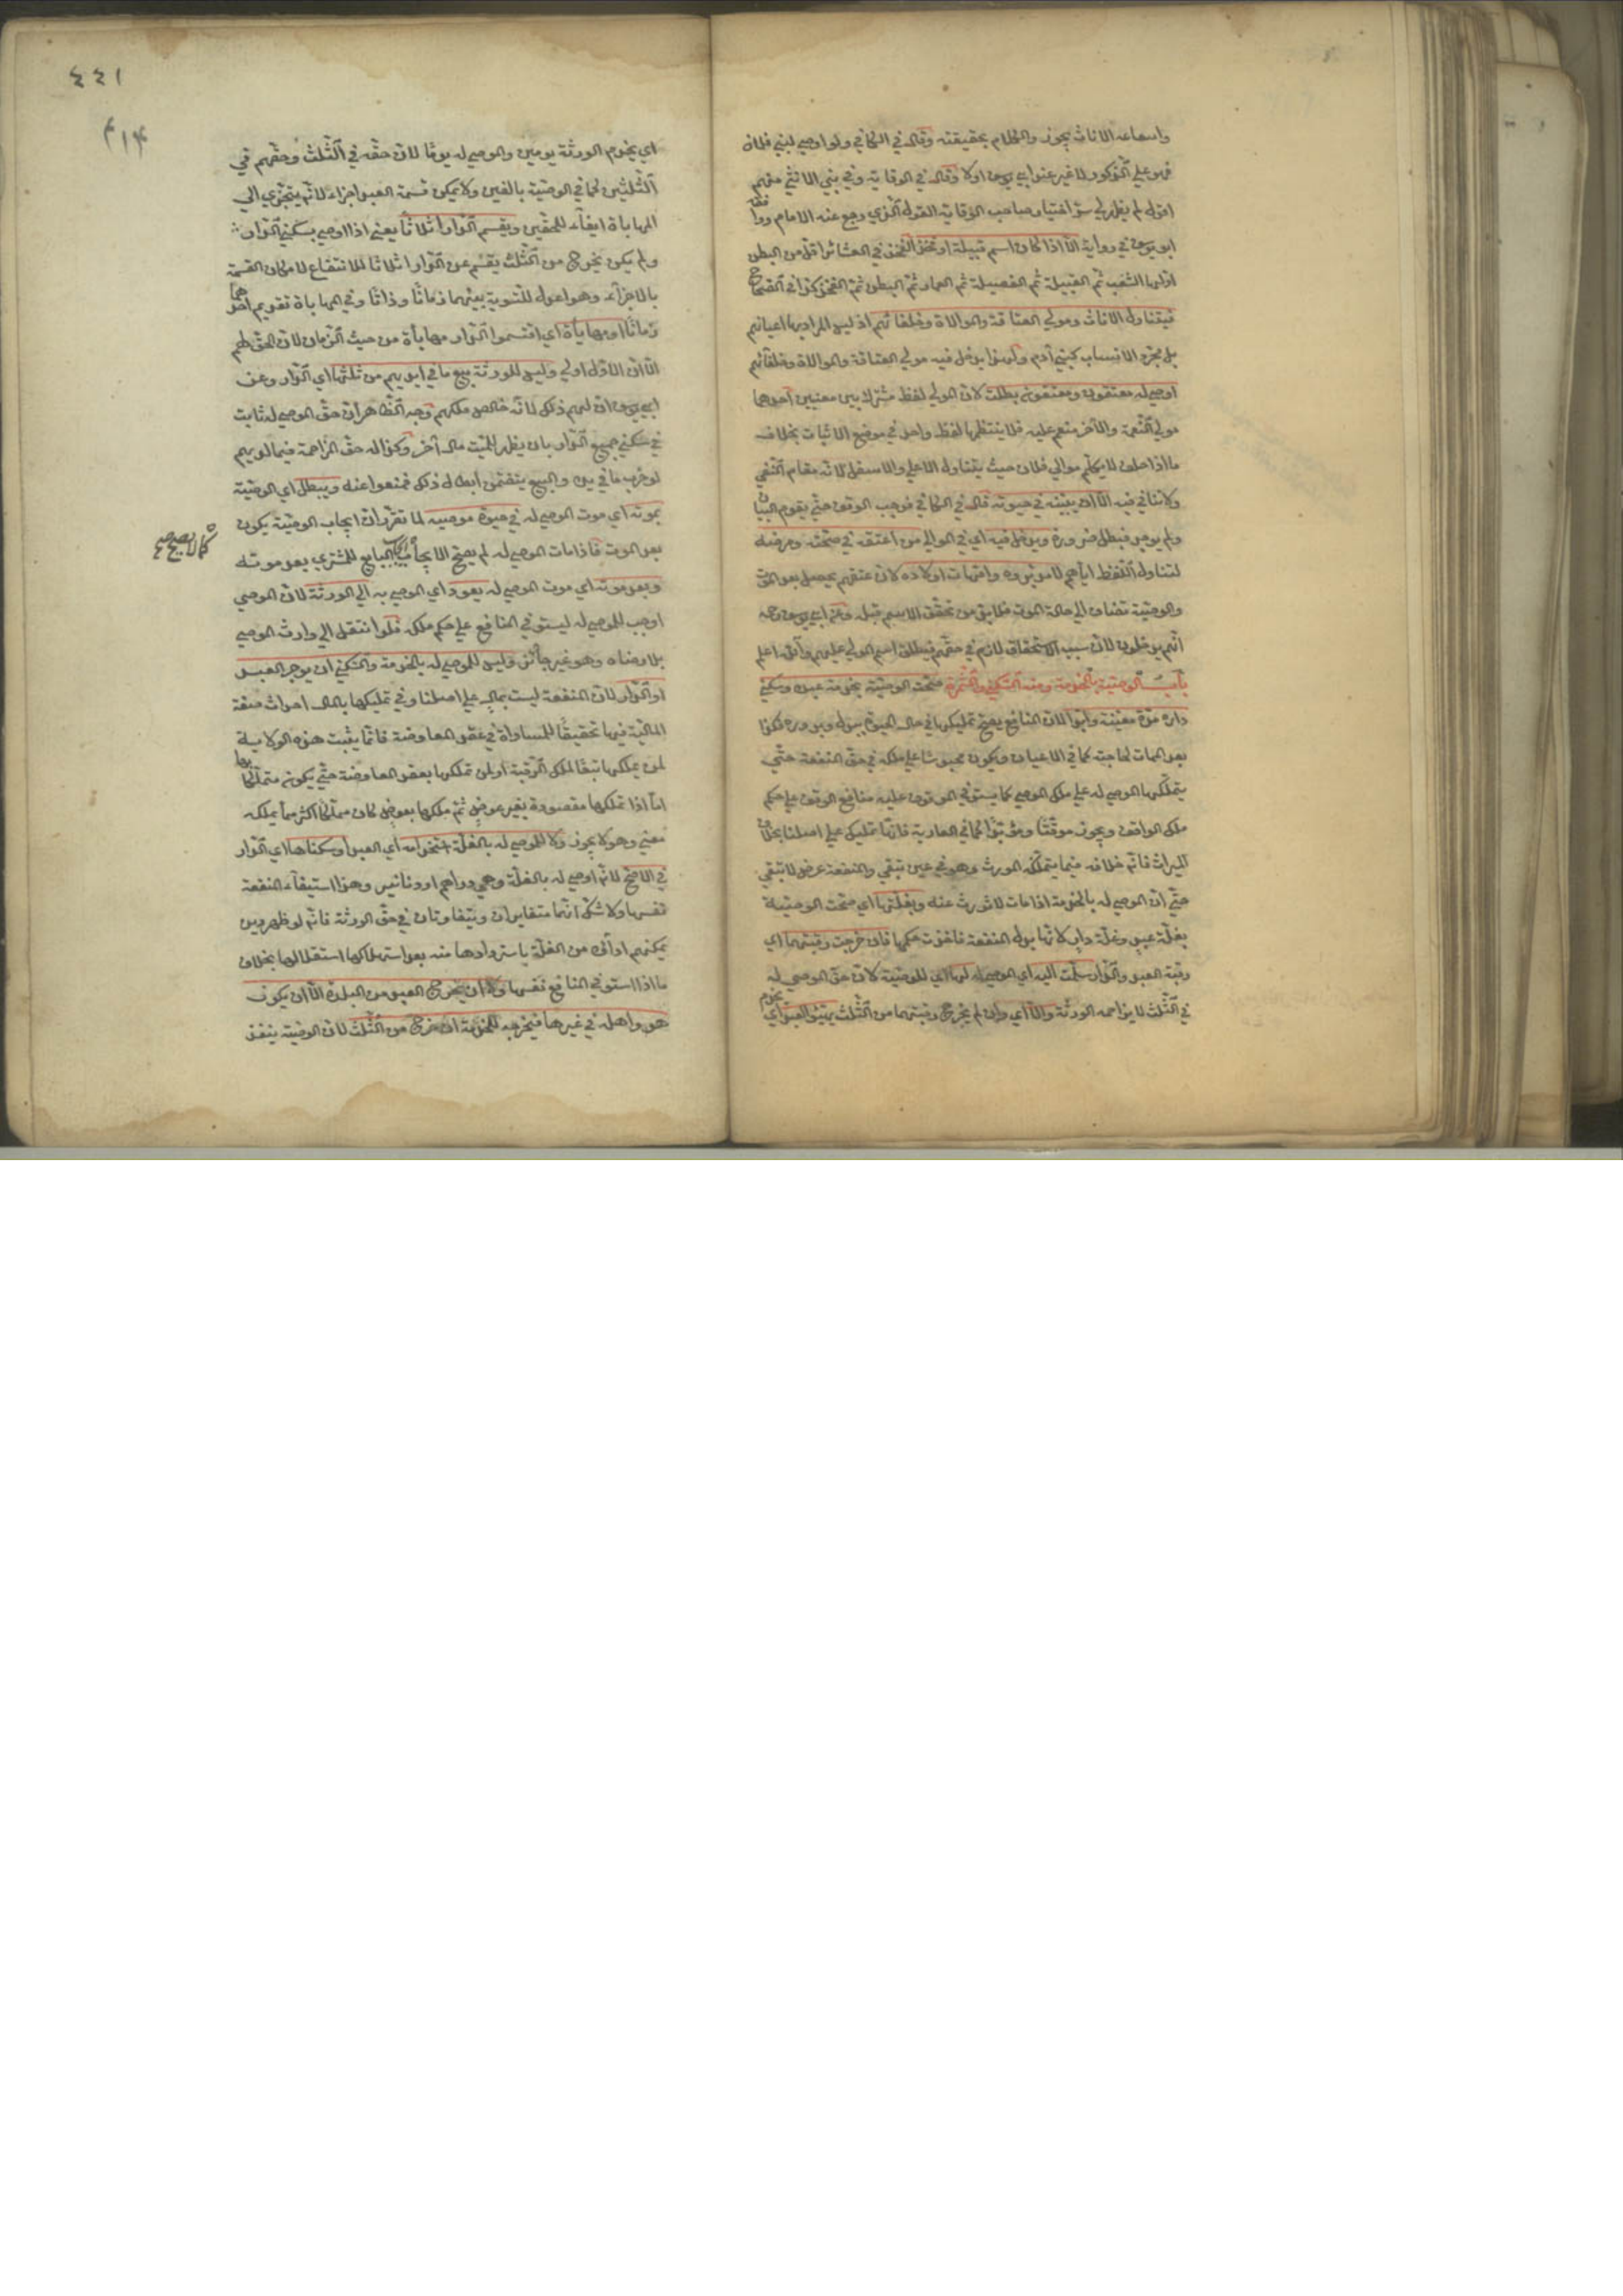 واسماعه الاناث يجوز والكلام بحقيقته وقال في الكافي ولو اوصي لبني فلان
فهو علي الذكور لا غير عند ابي يوسف اولا وقال في الوقاية وفي بني الانثي منهم
اقول لم يظهر لي سر اختيار صاحب الوقاية القول الذي رجع عنه الامام
ابو يوسف في رواية الا اذا كان اسم قبيلة او فخذ الفخذ في العشائر اقل من البطن
اولها الشعب ثم القبيلة ثم الفصيلة ثم العمارة ثم البطن ثم الفخذ كذا في الصحاح
فيتناول الاناث ومولي العتاقة والموالاة وخلفائهم اذ ليس المراد بها اعيانهم
بل مجرد الانتساب كبني آدم ولهذا يدخل فيه مولي العتاقة والموالاة وخلفائهم
اوصي له معتقون ومعتقونه بطلت لان المولي لفظ مشترك بين معنيين احدهما
مولي النعمة والآخر منعم عليه فلا ينتظمها لفظ واحد في موضع الاثبات بخلاف
ما اذا حلف لا يكلم موالي فلان حيث يتناول الاعلي والاسفل لانه مقام النفي
ولا تنافي فيه الا ان يبينه في حيوته قال في الكافي فوجب الوقف حتي يقوم البيان
ولم يوجد فبطل ضرورة ويدخل فيه اي في الموالي من اعتقه في صحته ومرضه
لتناول اللفظ اياهم لا مدبروه وامهات اولاده لان عتقهم يحصل بعد الموت
والوصية تضاف الي حالة الموت فلا بد من تحقق الاسم قبله وعن ابي يوسف رحمه
انهم يدخلون لان سبب الاستحقاق لازم في حقهم فيطلق اسم المولي عليهم والله اعلم
باب الوصية بالخدمة والسكني والثمرة صحت الوصية بخدمة عبده وسكني
داره مدة معينة وابدا لان المنافع يصح تمليكها في حال الحيوة ببدل وبدونه فكذا
بعد الممات لحاجته كما في الاعيان ويكون محبوسا علي ملكه في حق المنفعة حتي
يتملكها الموصي له علي ملك الموصي كما يستوفي الموقوف عليه منافع الوقف علي حكم
ملك الواقف ويجوز موقتا ومؤبدا كما في العارية فانها تمليك علي اصلنا بخلاف
الميراث فانه خلافة فيما يتملكه المورث وهو في عين تبقي والمنفعة عرض لا تبقي
حتي ان الموصي له بالخدمة اذا مات لا تورث عنه وبغلتها اي صحت الوصية
بغلة عبد وغلة دار لانها بدل المنفعة فاخذت حكمها فان خرجت رقبتهما اي
رقبة العبد والدار سلمت اليه اي الموصي له لها اي للوصية لان حق الموصي له
في الثلث لا يزاحمه الورثة والا اي وان لم يخرج رقبتهما من الثلث يهيئ العبد اي
يخدم
٤٤١
٤١٤
اي يخدم الورثة يومين والموصي له يوما لان حقه في الثلث وحقهم في
الثلثين كما في الوصية بالعين ولا يمكن قسمة العبد اجزاء لانه لا يتجزي الي
المهاباة ايفاء للحقين ويقسم الدار اثلاثا يعني اذا اوصي بسكني الدار
ولم يكن يخرج من الثلث يقسم عين الدار اثلاثا للانتفاع لامكان القسمة
بالاجزاء وهو اعدل للتسوية بينهما زمانا وذاتا وفي المهاباة تقويم احدهما
زمانا او مهاباة اي اقتسموا الدار مهاباة من حيث الزمان لان الحق لهم
الا ان الاول اولي وليس للورثة بيع ما في ايديهم من ثلثها اي الدار وعن
ابي يوسف ان لهم ذلك لانه خالص ملكهم وجه الظاهر ان حق الموصي له ثابت
في سكني جميع الدار بان يظهر للميت مال آخر وكذا له حق المزاحمة فيما لديهم
لو خرب ما في يده والبيع يتضمن ابطال ذلك فمنعوا عنه ويبطل اي الوصية
بموته اي موت الموصي له في حيوة موصيه لما تقرر ان ايجاب الوصية يكون
بعد الموت فاذا مات الموصي له لم يصح الايجاب كايجاب البايع للمشتري بعد موته
كما لا يصح صح
وبعد موته اي موت الموصي له يعود اي الموصي به الي الورثة لان الموصي
اوجب للموصي له ليستوفي المنافع علي حكم ملكه فلو انتقل الي وارث الموصي
بلا رضاه وهو غير جائز وليس للموصي له بالخدمة والسكني ان يوجر العبد
او الدار لان المنفعة ليست بمال علي اصلنا وفي تمليكها بالمال احداث صفة
المالية فيها تحقيقا للمساواة في عقد المعاوضة فانما يثبت هذه الولاية
لمن يملكها تبعا لملك الرقبة او لمن تملكها بعقد المعاوضة حتي يكون مملكا لها
اما اذا تملكها مقصودة بغير عوض ثم ملكها بعوض كان مملكا اكثر مما يملكه
معني وهو لا يجوز ولا للموصي له بالغلة استخدامه اي العبد او سكناها اي الدار
في الاصح لانه اوصي له بالغلة وهي دراهم او دنانير وهذا استيفاء المنفعة
نفسها ولا شك انهما متغايران ويتفاوتان في حق الورثة فانه لو ظهر دين
يمكنهم اداؤه من الغلة باستردادها منه بعد استهلاكها استغلالها بخلاف
ما اذا استوفي المنافع نفسها ولا ان يخرج العبد من البلدة الا ان يكون
هو واهله في غيرها فيخرجه للخدمة ان خرج من الثلث لان الوصية ينفذ